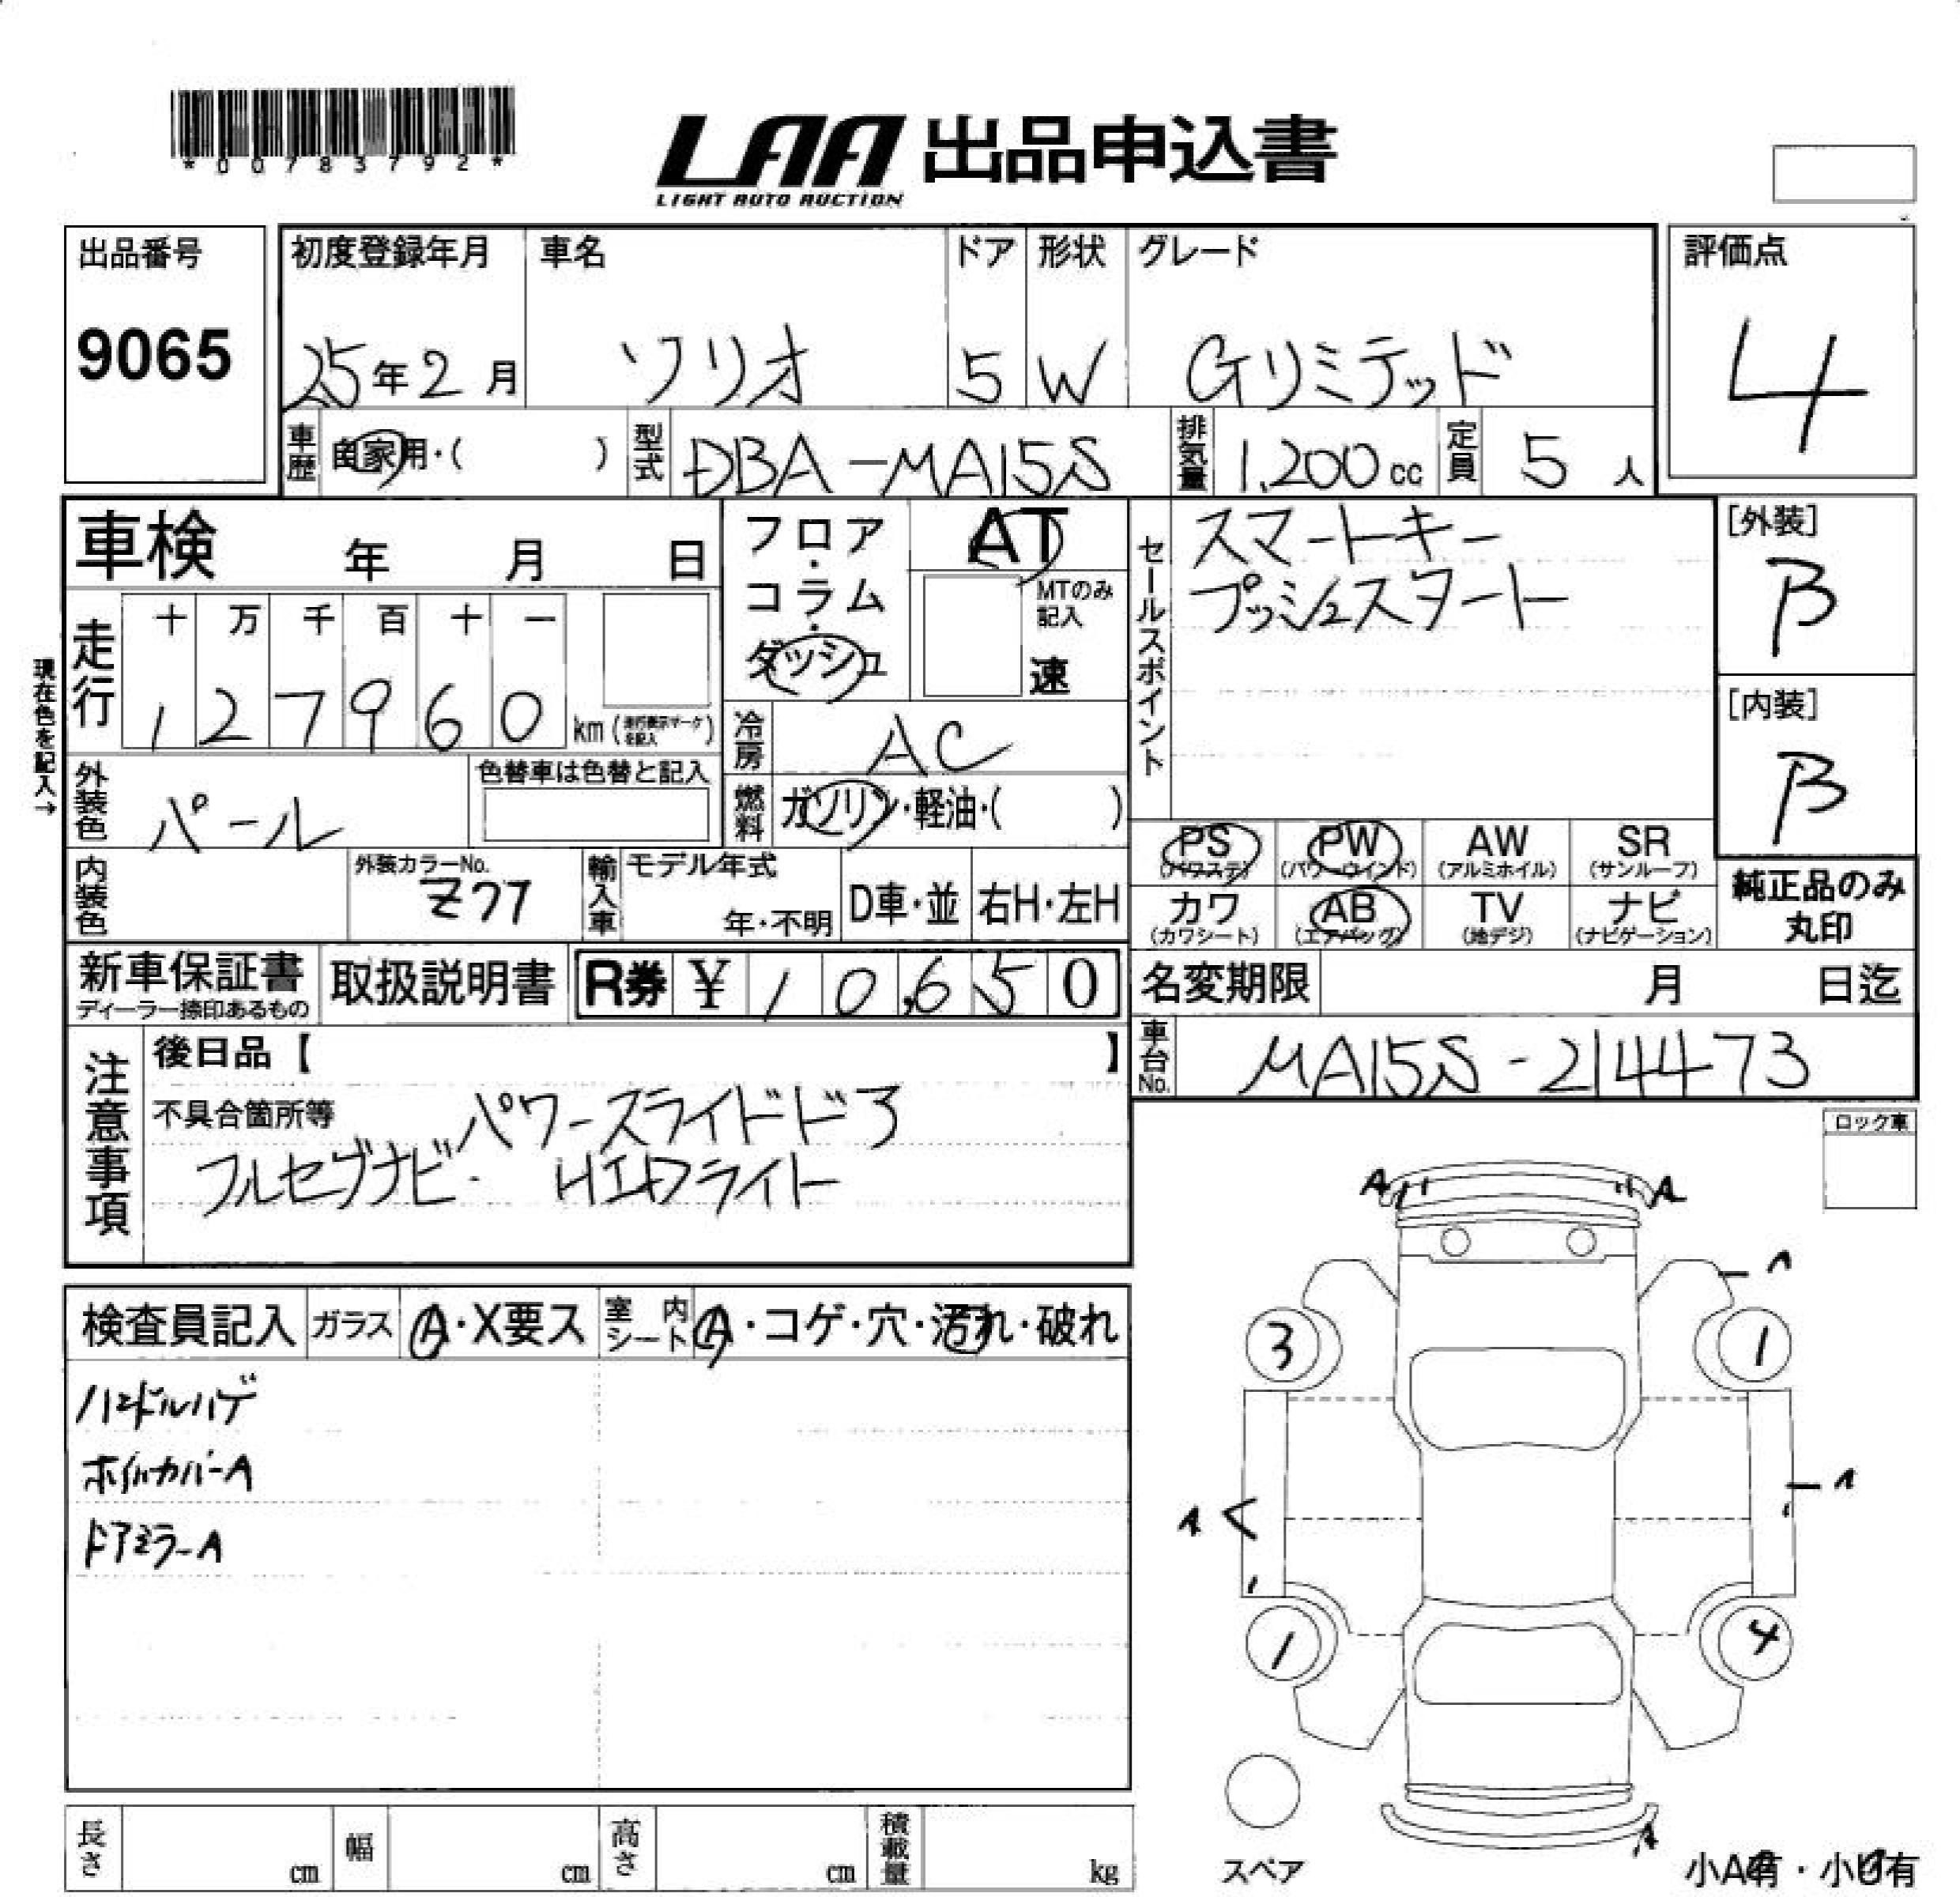 *00783792*
LAA 出品申込書
LIGHT AUTO AUCTION
出品番号
9065
初度登録年月
25年2月
車名
ソリオ
ドア
5
形状
W
グレード
Gリミテッド
評価点
4
車歴
自家用・( )
型式
DBA-MA15S
排気量
1,200cc
定員
5人
車検 年 月 日
フロア・コラム・ダッシュ
AT
MTのみ記入
速
セールスポイント
スマートキー
プッシュスタート
[外装]
B
[内装]
B
現在色を記入→
走行
十 万 千 百 十 一
1 2 7 9 6 0 km
(走行表示マークを記入)
冷房
AC
外装色
パール
色替車は色替と記入
燃料
ガソリン・軽油・( )
内装色
外装カラーNo.
Z77
輸入車
モデル年式
年・不明
D車・並
右H・左H
PS
(パワステ)
PW
(パワーウインド)
AW
(アルミホイル)
SR
(サンルーフ)
カワ
(カワシート)
AB
(エアバッグ)
TV
(地デジ)
ナビ
(ナビゲーション)
純正品のみ
丸印
新車保証書
ディーラー捺印あるもの
取扱説明書
R券 ¥ 10,650
名変期限 月 日迄
車台No.
MA15S-214473
注意事項
後日品【 】
不具合箇所等
パワースライドドア
フルセグナビ. HIDライト
ロック車
検査員記入
ガラス
A・X要ス
室内シート
A・コゲ・穴・汚れ・破れ
ハンドルハゲ
ホイルカバーA
ドアミラーA
A A
A
3 1
A
A
1 4
A
スペア
小A有・小B有
長さ cm
幅 cm
高さ cm
積載量 kg